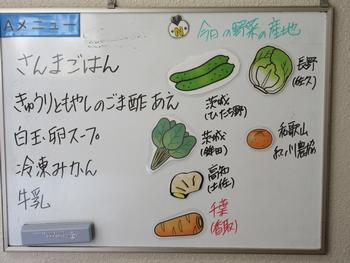 Aメニュー
さんまごはん
きゅうりともやしのごま酢あえ
白玉卵スープ
冷凍みかん
牛乳
今日の野菜の産地
長野
(佐久)
茨城
(ひたち野)
茨城
(鉾田)
和歌山
紀ノ川農協
高知
(土佐)
千葉
(香取)